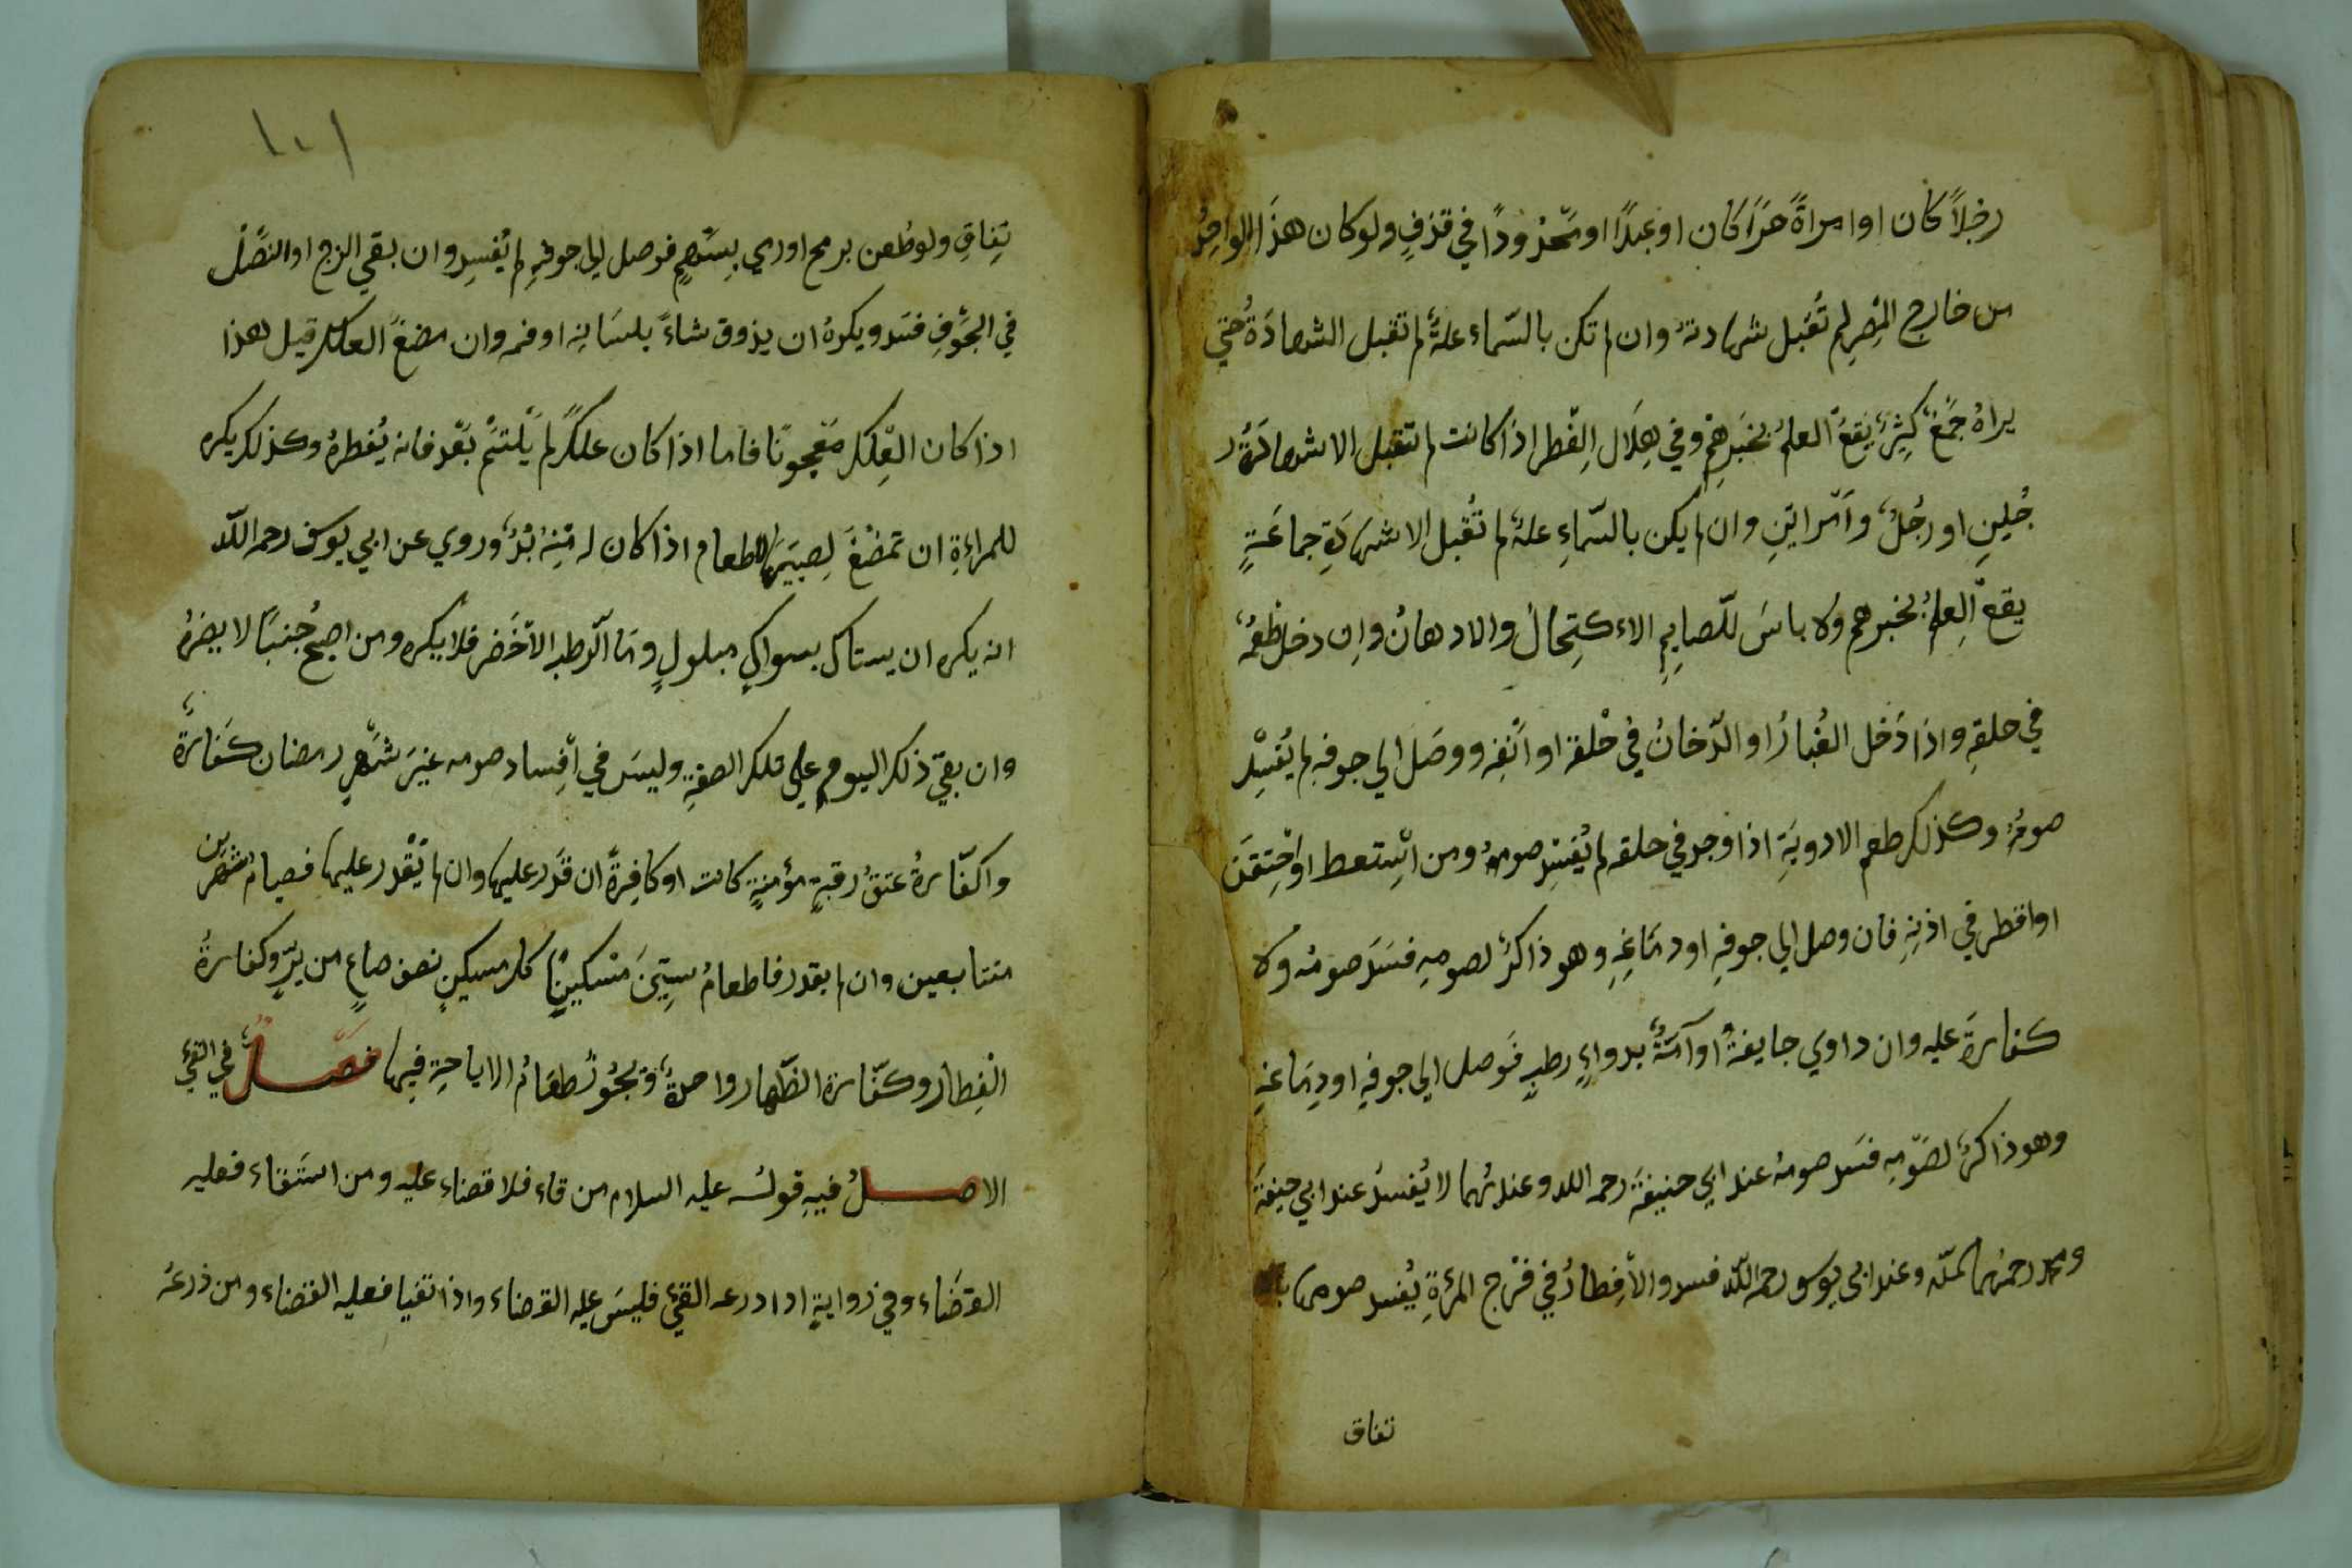 رجلاً كان او امراةً حرًا كان او عبدًا او محدودًا في قذفٍ ولو كان هذا الواحِدُ
من خارج المِصرِ لم تُقبل شهادتهُ وان لم تكن بالسّماء علةٌ لم تقبل الشهادَةُ حتي
يراهُ جَمْعٌ كثِيرٌ يَقعُ العلمُ بخبَرِهِمْ وفي هِلَال الِفطر اذا كانت لم تقبل الا شهادَةُ ر
جُلينِ او رجُلٌ وَاَمراتينِ وان لم يكن بالسّماءِ علةٌ لم تُقبل الا شهادَةِ جماعَةٍ
يقعُ العِلمُ بخبرهم ولا باسَ للّصايمِ الاءكتِحالُ والادهانُ واِن دخل طعمُهُ
في حلقهِ واذا دَخل الغُبارُ او الدّخانُ في حْلقهَ او اَنْفِهِ ووصَلَ الي جوفهِ لم يُفسِدْ
صومهُ وكذلك طعم الادويَةِ اذا وجد في حلقه لم يُفسِد صومهُ ومن اسْتعط او احْتِقَنَ
او اقطر في اذنِهِ فان وصل الي جوفهِ او دمَاغِهِ وهو ذاكرٌ لصومِهِ فسَدَ صومُه ولا
كفارةَ عليه وان داوي جايفةً او آمّةً بدواءٍ رطبٍ فَوصل الي جوفهِ او دِمَاغهِ
وهو ذاكرٌ لصَوْمِهِ فسَد صومهُ عند ابي حنيفةَ رحمه الله وعندهُما لا يُفسدُ عند ابي حنيفةَ
ومحمد رحمهُما اللّه وعند ابي يوسو رحمه اللّه فسد والاْفِطارُ في فرْج المرْءَةِ يُفسد صومها با
تفاق
١٠١
تِفاقٍ ولو طُعن برمح او رمي بِسَهمٍ فوصل الي جوفهِ لم يُفسِد وان بقي الزج او النصْلُ
في الجَوفِ فسَد ويكرهُ ان يذوق شاءً بلسَانِهِ او فمه وان مضغَ العلك قيل هذا
اذا كان العِلك مَعْجونًا فاما اذا كان علكًا لم يَلْتئمْ بَعْد فانه يُفطرهُ وكذلك يكره
للمراءةِ ان تمضغَ لِصبيّها الطعام اذا كان له مِنهُ بُدٌّ وروي عن ابي يوسف رحمه اللّه
انه يكره ان يستاك بسواكٍ مبلولٍ وامّا الّرطب الاْخضَر فلا يكره ومن اصبح جُنبًا لا يضرهُ
وان بقيَ ذلك اليوم علي تلك الصفةِ وليسَ في اِفْساد صومه غيرَ شَهْرِ رمضان كفارةٌ
واكفّارةُ عتقُ رقبةٍ مؤمنةٍ كانت او كافرةً ان قدَر عليها وان لم يَقْدر عليها فصيامُ شهرَين
متتابعين وان لم يقدر فاطعامُ سِتّينَ مسْكينًا كل مسكينٍ نصف صاعٍ من برٍ وكفارةُ
الفِطار وكفّارة الظّهار واحدةٌ وَيجُوزُ طعَامُ الاباحةِ فيها فصلٌ في القئ
الاصلُ فيه قولُه عليه السلام من قاء فلا قضاء عليه ومن استقاء فعليه
القضَاء وفي رُوايةٍ اذا درعه القئ فليسَ عليه القضاء واذا تقيا فعليه القضاء ومن ذرعَه